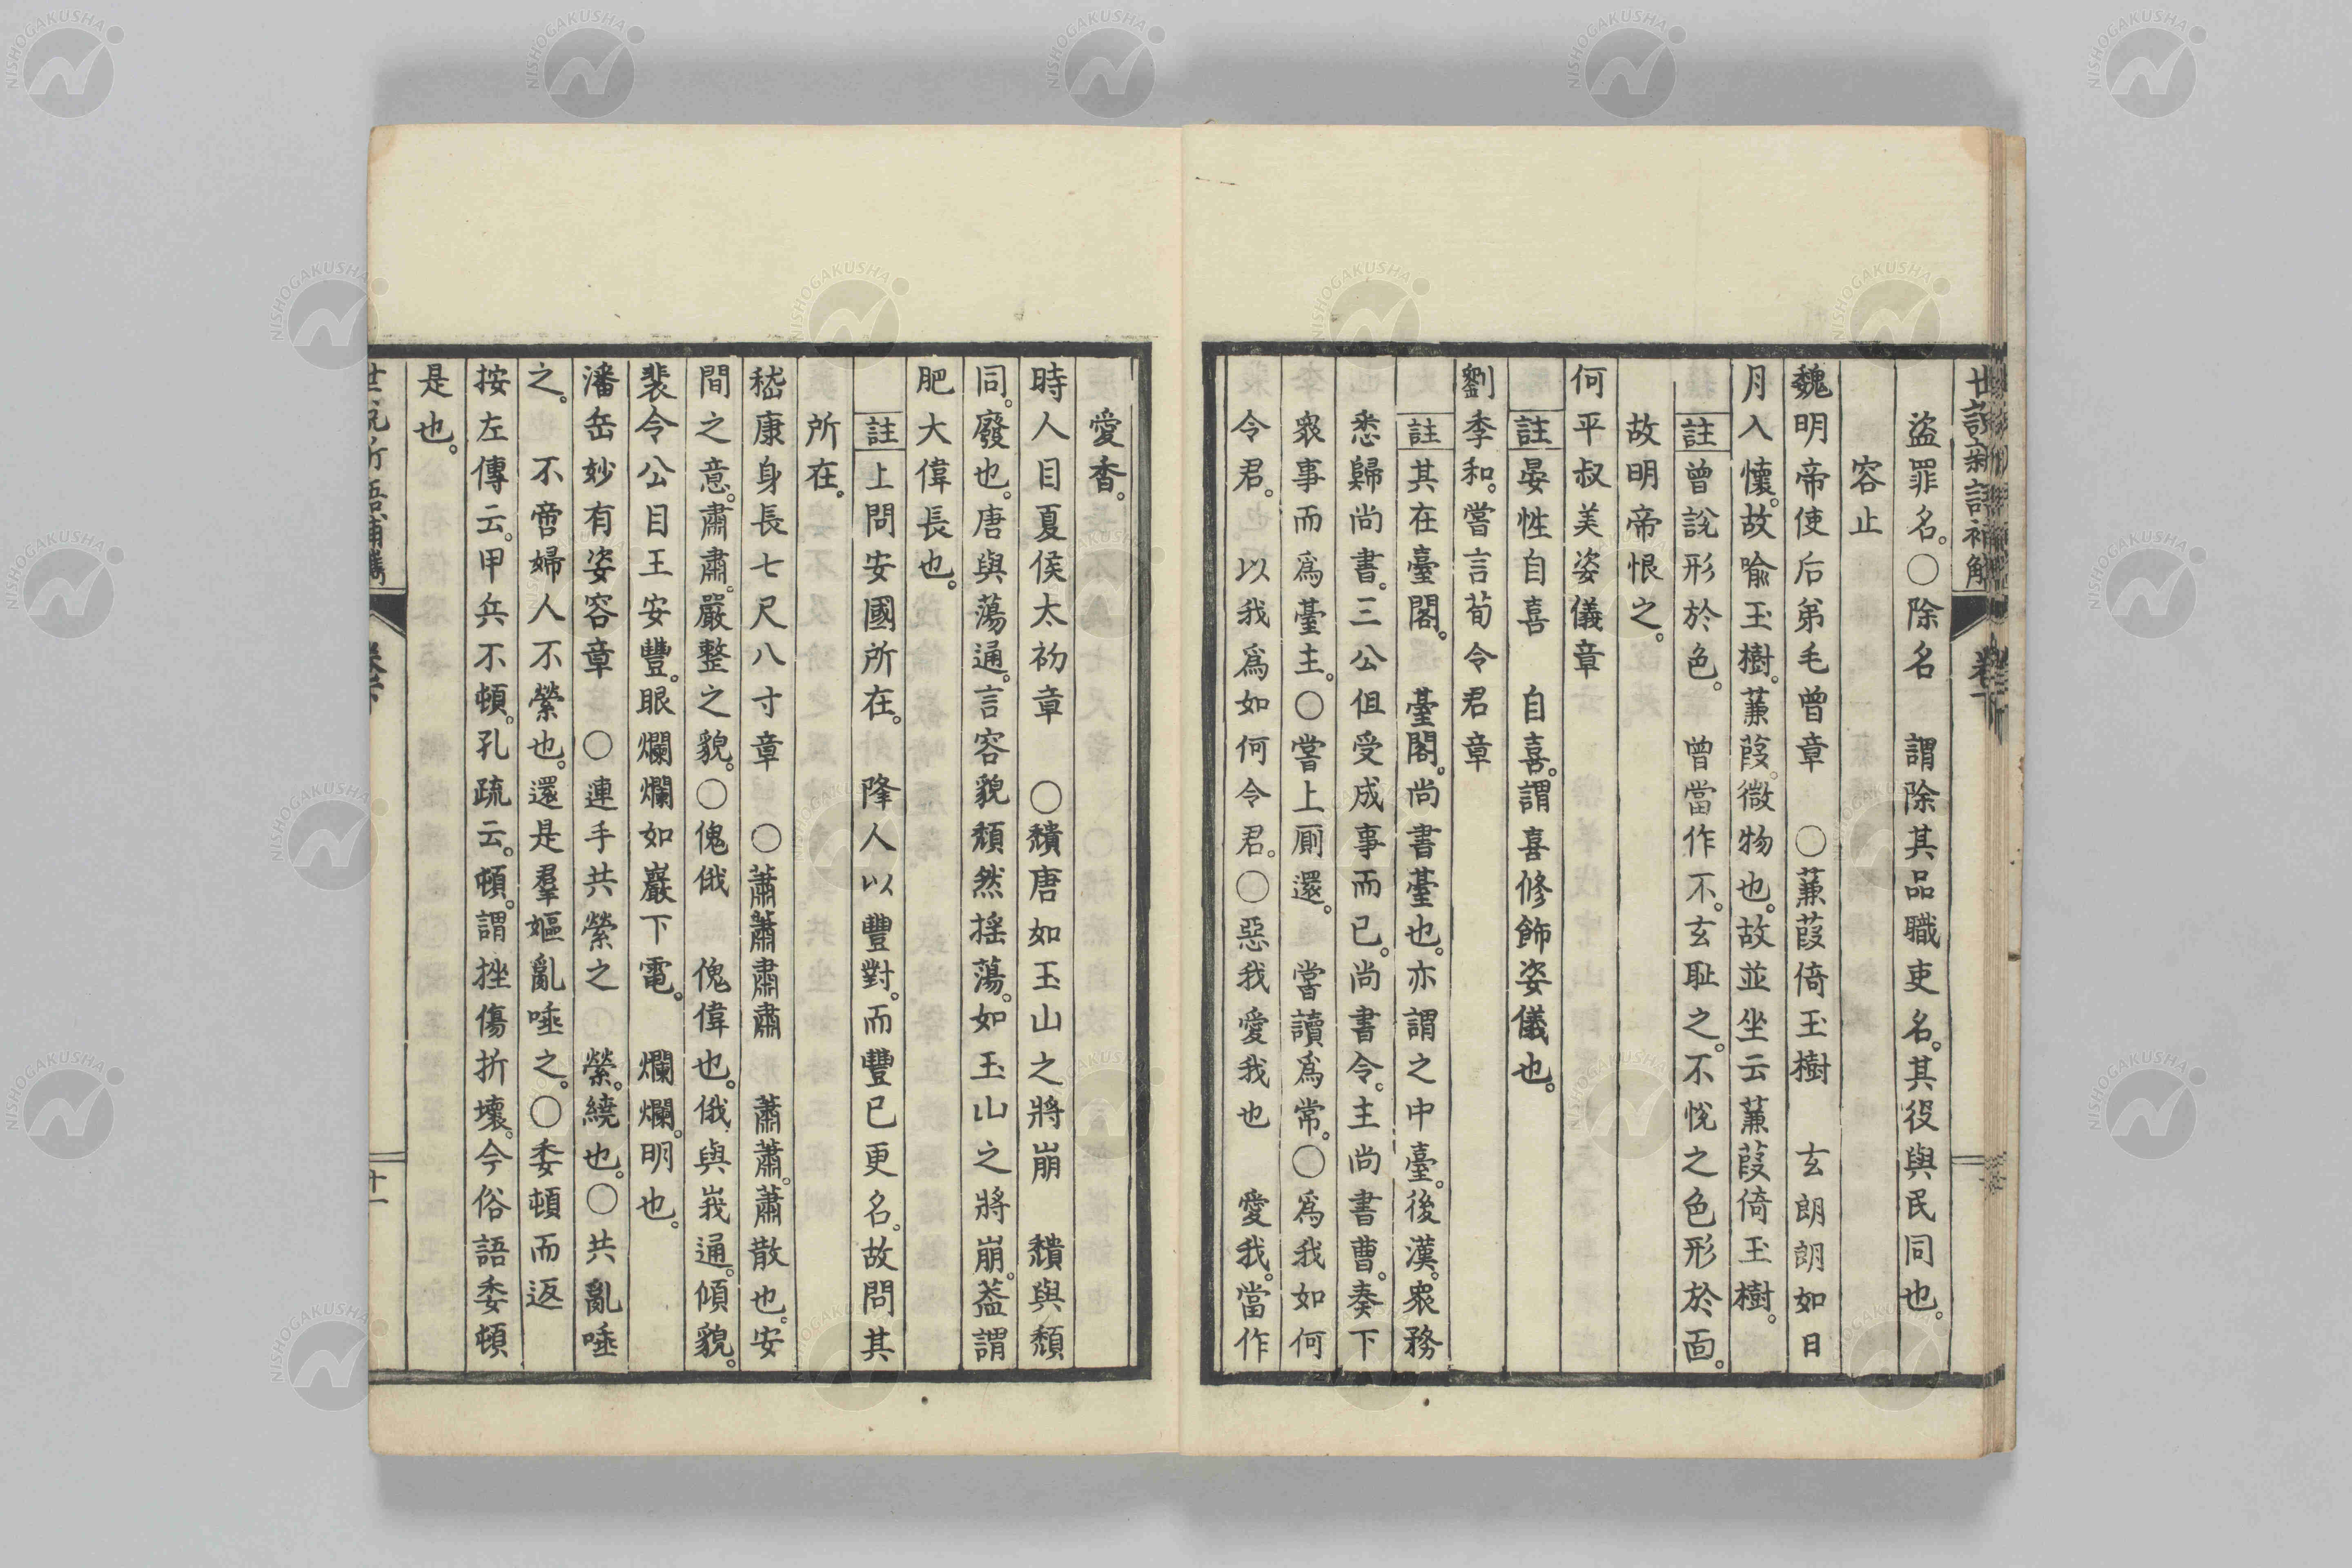 盜罪名。〇除名　謂除其品職吏名。其役與民同也。
容止
魏明帝使后弟毛曾章　〇蒹葭倚玉樹　玄朗朗如日
月入懷。故喻玉樹。蒹葭。微物也。故並坐云蒹葭倚玉樹。
註曾說形於色。　曾當作不。玄耻之。不悅之色形於面。
故明帝恨之。
何平叔美姿儀章
註晏性自喜　自喜。謂喜修飾姿儀也。
劉季和。嘗言荀令君章
註其在臺閣。　臺閣。尚書臺也。亦謂之中臺。後漢。眾務
悉歸尚書。三公但受成事而已。尚書令。主尚書曹。奏下
眾事而爲臺主。〇嘗上厠還。　嘗讀爲常。〇爲我如何
令君。　以我爲如何令君。〇惡我愛我也　愛我。當作
愛香。
時人目夏侯太初章　〇穨唐如玉山之將崩　穨與頹
同。廢也。唐與蕩通。言容貌頹然搖蕩。如玉山之將崩。葢謂
肥大偉長也。
註上問安國所在。　降人以豐對。而豐已更名。故問其
所在。
嵇康身長七尺八寸章　〇蕭蕭肅肅　蕭蕭。蕭散也。安
間之意。肅肅。嚴整之貌。〇傀俄　傀偉也。俄與峩通。傾貌。
裴令公目王安豐。眼爛爛如巖下電。　爛爛。明也。
潘岳妙有姿容章　〇連手共縈之　縈。繞也。〇共亂唾
之。　不啻婦人不縈也。還是羣嫗亂唾之。〇委頓而返
按左傳云。甲兵不頓。孔疏云。頓。謂挫傷折壞。今俗語委頓
是也。
十一